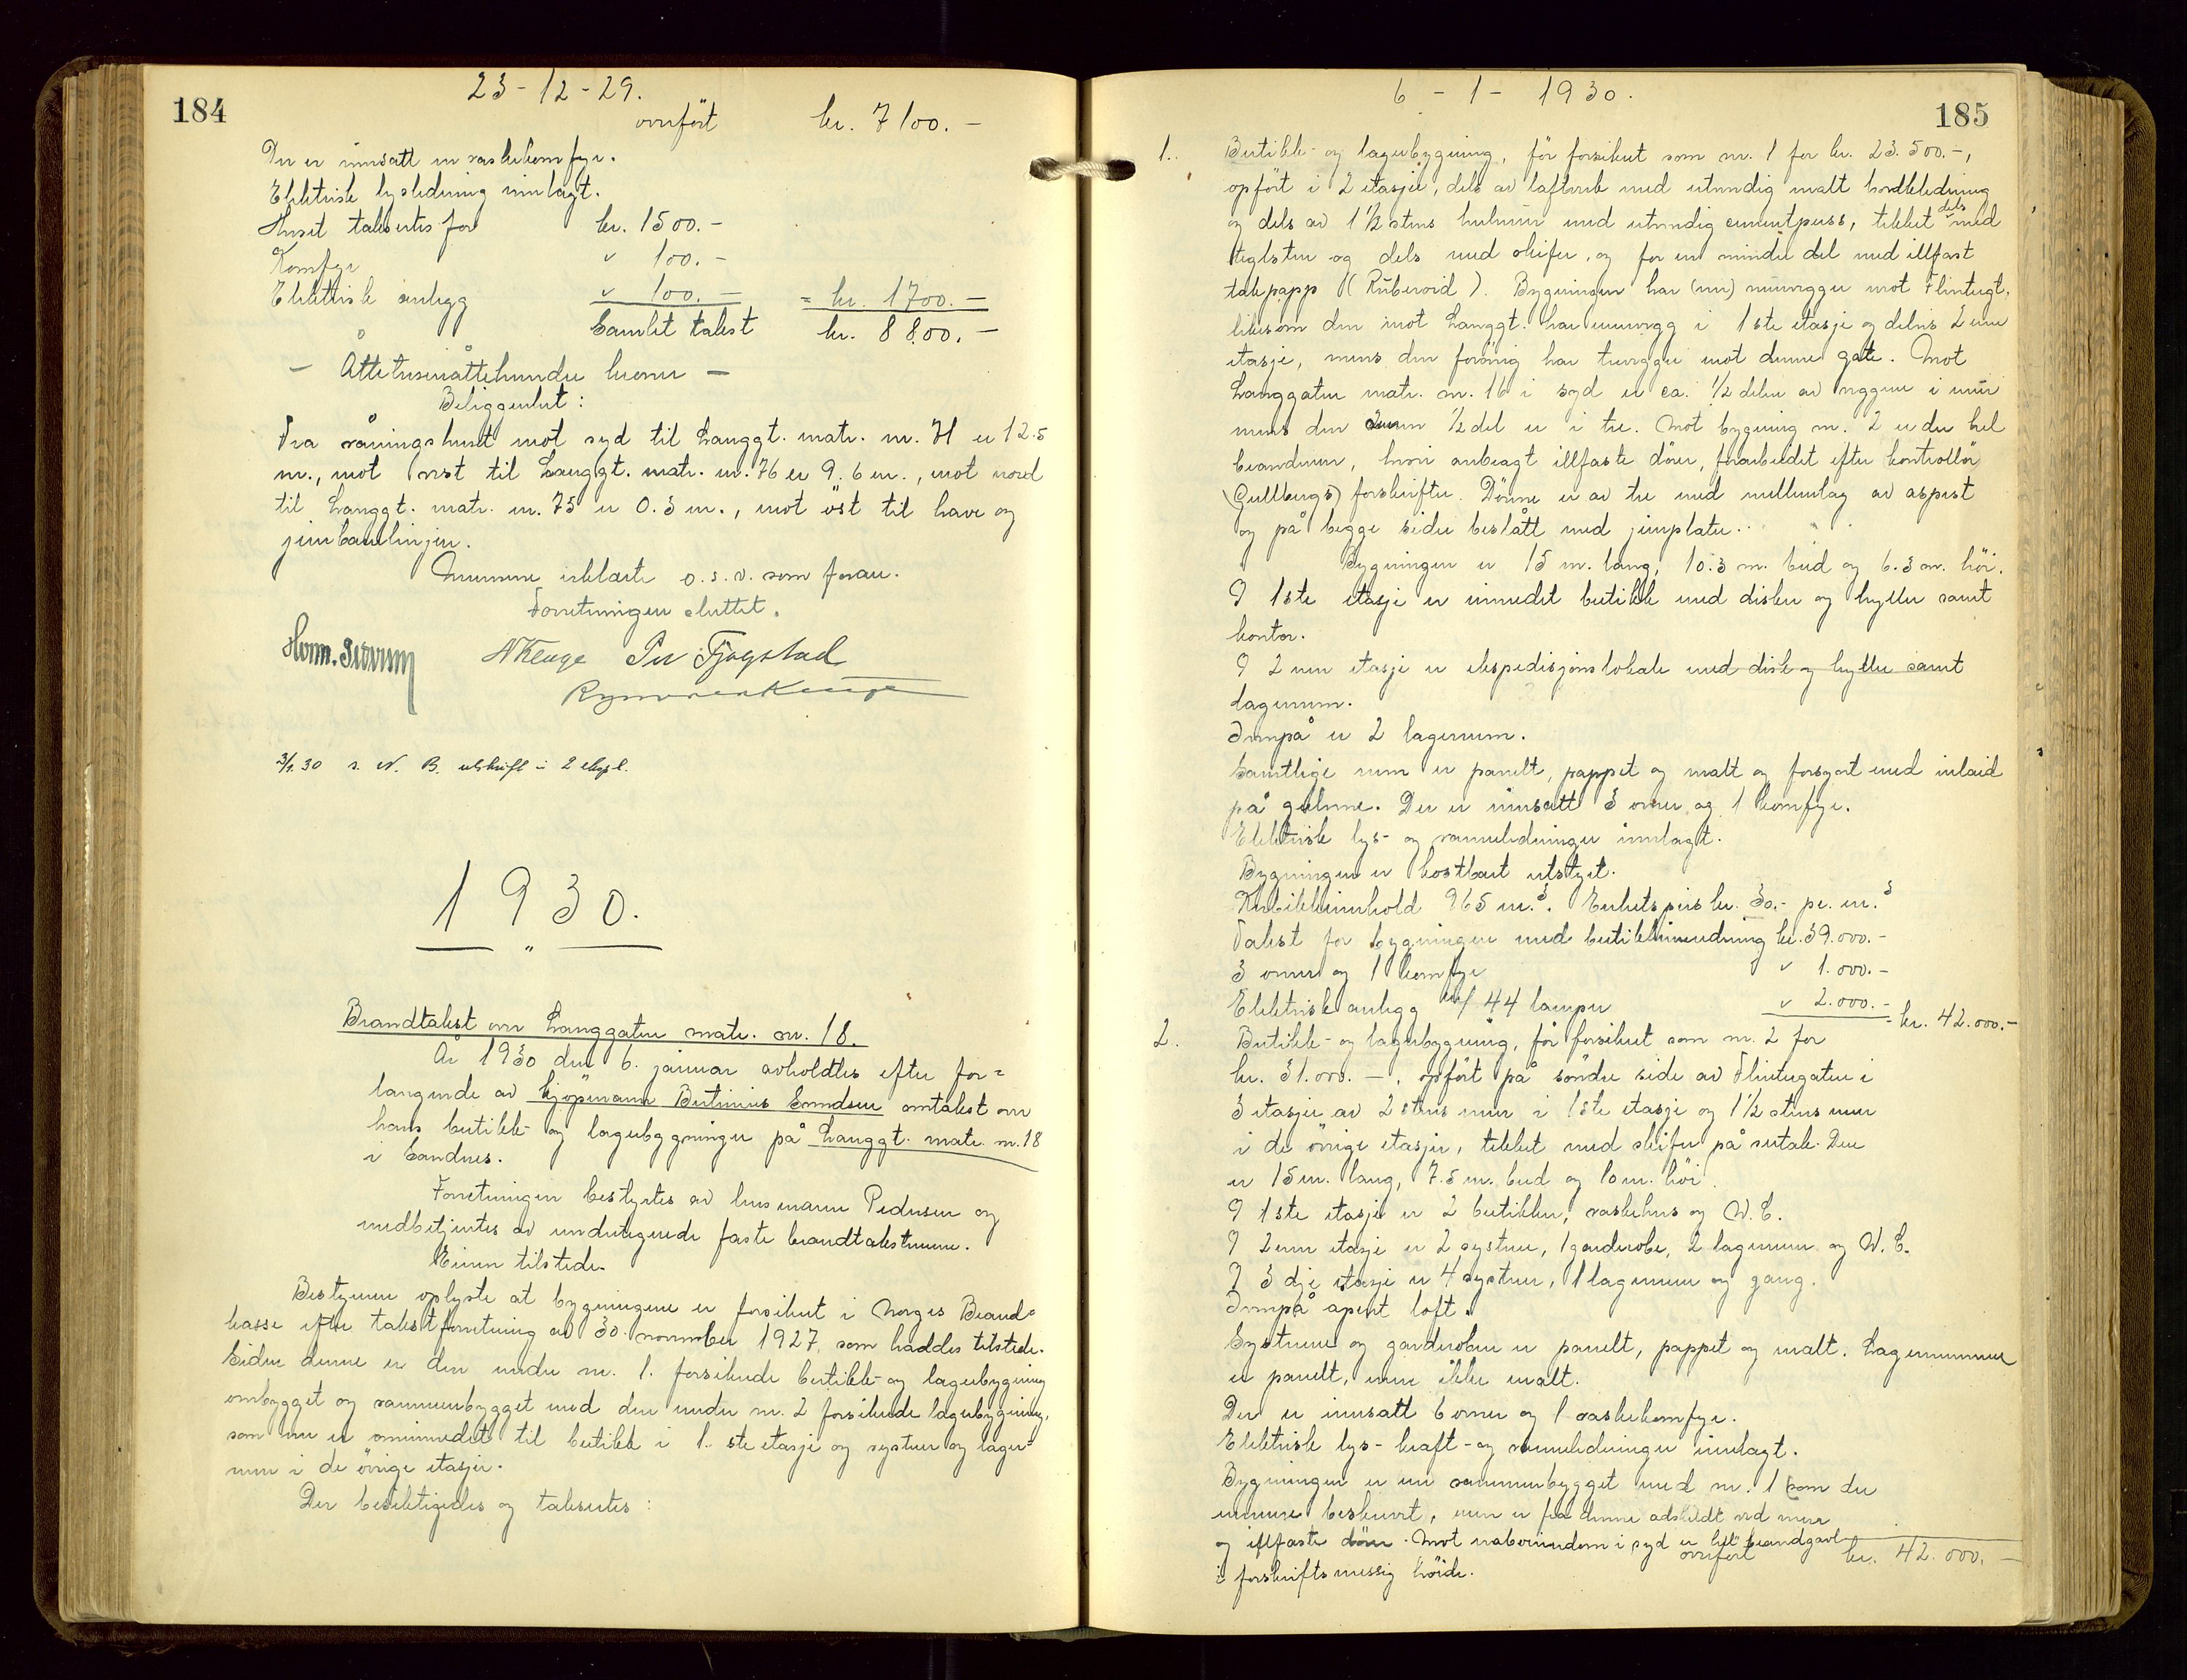 184
23-12-29.
overført kr. 7100.-
Der er innsatt en vaskekomfyr.
Elektrisk lysledning innlagt.
Huset takseres for kr. 1500.-
Komfyr " 100.-
Elektrisk anlegg " 100.- = kr. 1700.-
Samlet takst kr. 8800.-
- Åttetusenåttehundre kroner -
Beliggenhet:
Fra våningshuset mot syd til Langgt. matr. nr. 71 er 12.5
m., mot vest til Langgt. matr. nr. 76 er 9.6 m., mot nord
til Langgt. matr. nr. 75 er 0.3 m., mot öst til have og
jernbanelinjen.
Mennene erklærte o.s.v. som foran.
Forretningen sluttet.
Per Tjøgstad
3/1.30 s. N. B. utskrift i 2 ekspl.
1930.
"
Brandtakst over Langgaten matr. nr. 18.
År 1930 den 6. januar avholdtes efter for=
langende av kjöpmann Bertinius Svendsen omtakst over
hans butikk- og lagerbygninger på Langgt. matr. nr. 18
i Sandnes.
Forretningen bestyrtes av lensmann Pedersen og
medbetjentes av undertegnede faste brandtakstmenn.
Eieren tilstede.
Bestyreren oplyste at bygningene er forsikret i Norges Brand=
kasse efter takstforretning av 30. november 1927, som haddes tilstede.
Siden denne er den under nr. 1. forsikrede butikk- og lagerbygning
ombygget og sammenbygget med den under nr. 2 forsikrede lagerbygning,
som nu er ominnredet til butikk i 1.ste etasje og systuer og lager=
rum i de övrige etasjer.
Der besiktigedes og takseredes:
185
6 - 1 - 1930.
1. Butikk- og lagerbygning, för forsikret som nr. 1 for kr. 23.500.-,
opfört i 2 etasjer, dels av laftverk med utvendig malt bordkledning
og dels av 1 1/2 stens hulmur med utvendig cementpuss, tekket dels med
teglsten og dels med skifer, og for en mindre del med illfast
takpapp (Ruberoid). Bygningen har (nu) murvegger mot Flintegt.
likesom den mot Langgt. har murvegg i 1ste etasje og delvis 2nen
etasje, mens den forövrig har trevegger mot denne gate. Mot
Langgaten matr. nr. 16 i syd er ca. 1/2 delen av veggen i mur
mens den annen 1/2 del er i tre. Mot bygning nr. 2 er der hel
brandmur, hvori anbragt illfaste dörer, forarbeidet efter kontrollör
(Gullbergs) forskrifter. Dörene er av tre med mellemlag av aspest
og på begge sider beslått med jernplater.
Bygningen er 15 m. lang, 10.3 m. bred og 6.3 m. höi.
I 1ste etasje er innredet butikk med disker og hyller samt
kontor.
I 2nen etasje er ekspedisjonslokale med disk og hyller samt
lagerrum.
Ovenpå er 2 lagerrum.
Samtlige rum er panelt, pappet og malt og forsynt med inlaid
på gulvene. Der er innsatt 3 ovner og 1 komfyr.
Elektrisk lys- og varmeledninger innlagt.
Bygningen er kostbart utstyrt.
Kubikkinnhold 965 m.³. Enhetspris kr. 30.- pr. m.³
Takst for bygningen med butikkinnredning kr. 39.000.-
3 ovner og 1 komfyr " 1.000.-
Elektrisk anlegg m/ 44 lamper " 2.000.- = kr. 42.000.-
2. Butikk- og lagerbygning, för forsikret som nr. 2 for
kr. 31.000.-, opfört på söndre side av Flintegaten i
3 etasjer av 2 stens mur i 1ste etasje og 1 1/2 stens mur
i de övrige etasjer, tekket med skifer på rutak. Den
er 15 m. lang, 7.5 m. bred og 10 m. höi.
I 1ste etasje er 2 butikker, vaskehus og W.C.
I 2nen etasje er 2 systuer, 1 garderobe, 2 lagerrum og W.C.
I 3dje etasje er 4 systuer, 1 lagerrum og gang.
Ovenpå åpent loft.
Systuene og garderoben er panelt, pappet og malt. Lagerrummene
er panelt, men ikke malt.
Der er innsatt 6 ovner og 1 vaskekomfyr.
Elektrisk lys- kraft- og varmeledninger innlagt.
Bygningen er nu sammenbygget med nr. 1 som der
nærmere beskrevet, men er fra denne adskildt ved mur
og illfaste dörer. Mot naboeiendom i syd er hel brandgavl
i forskriftsmessig höide. overført kr. 42.000.-